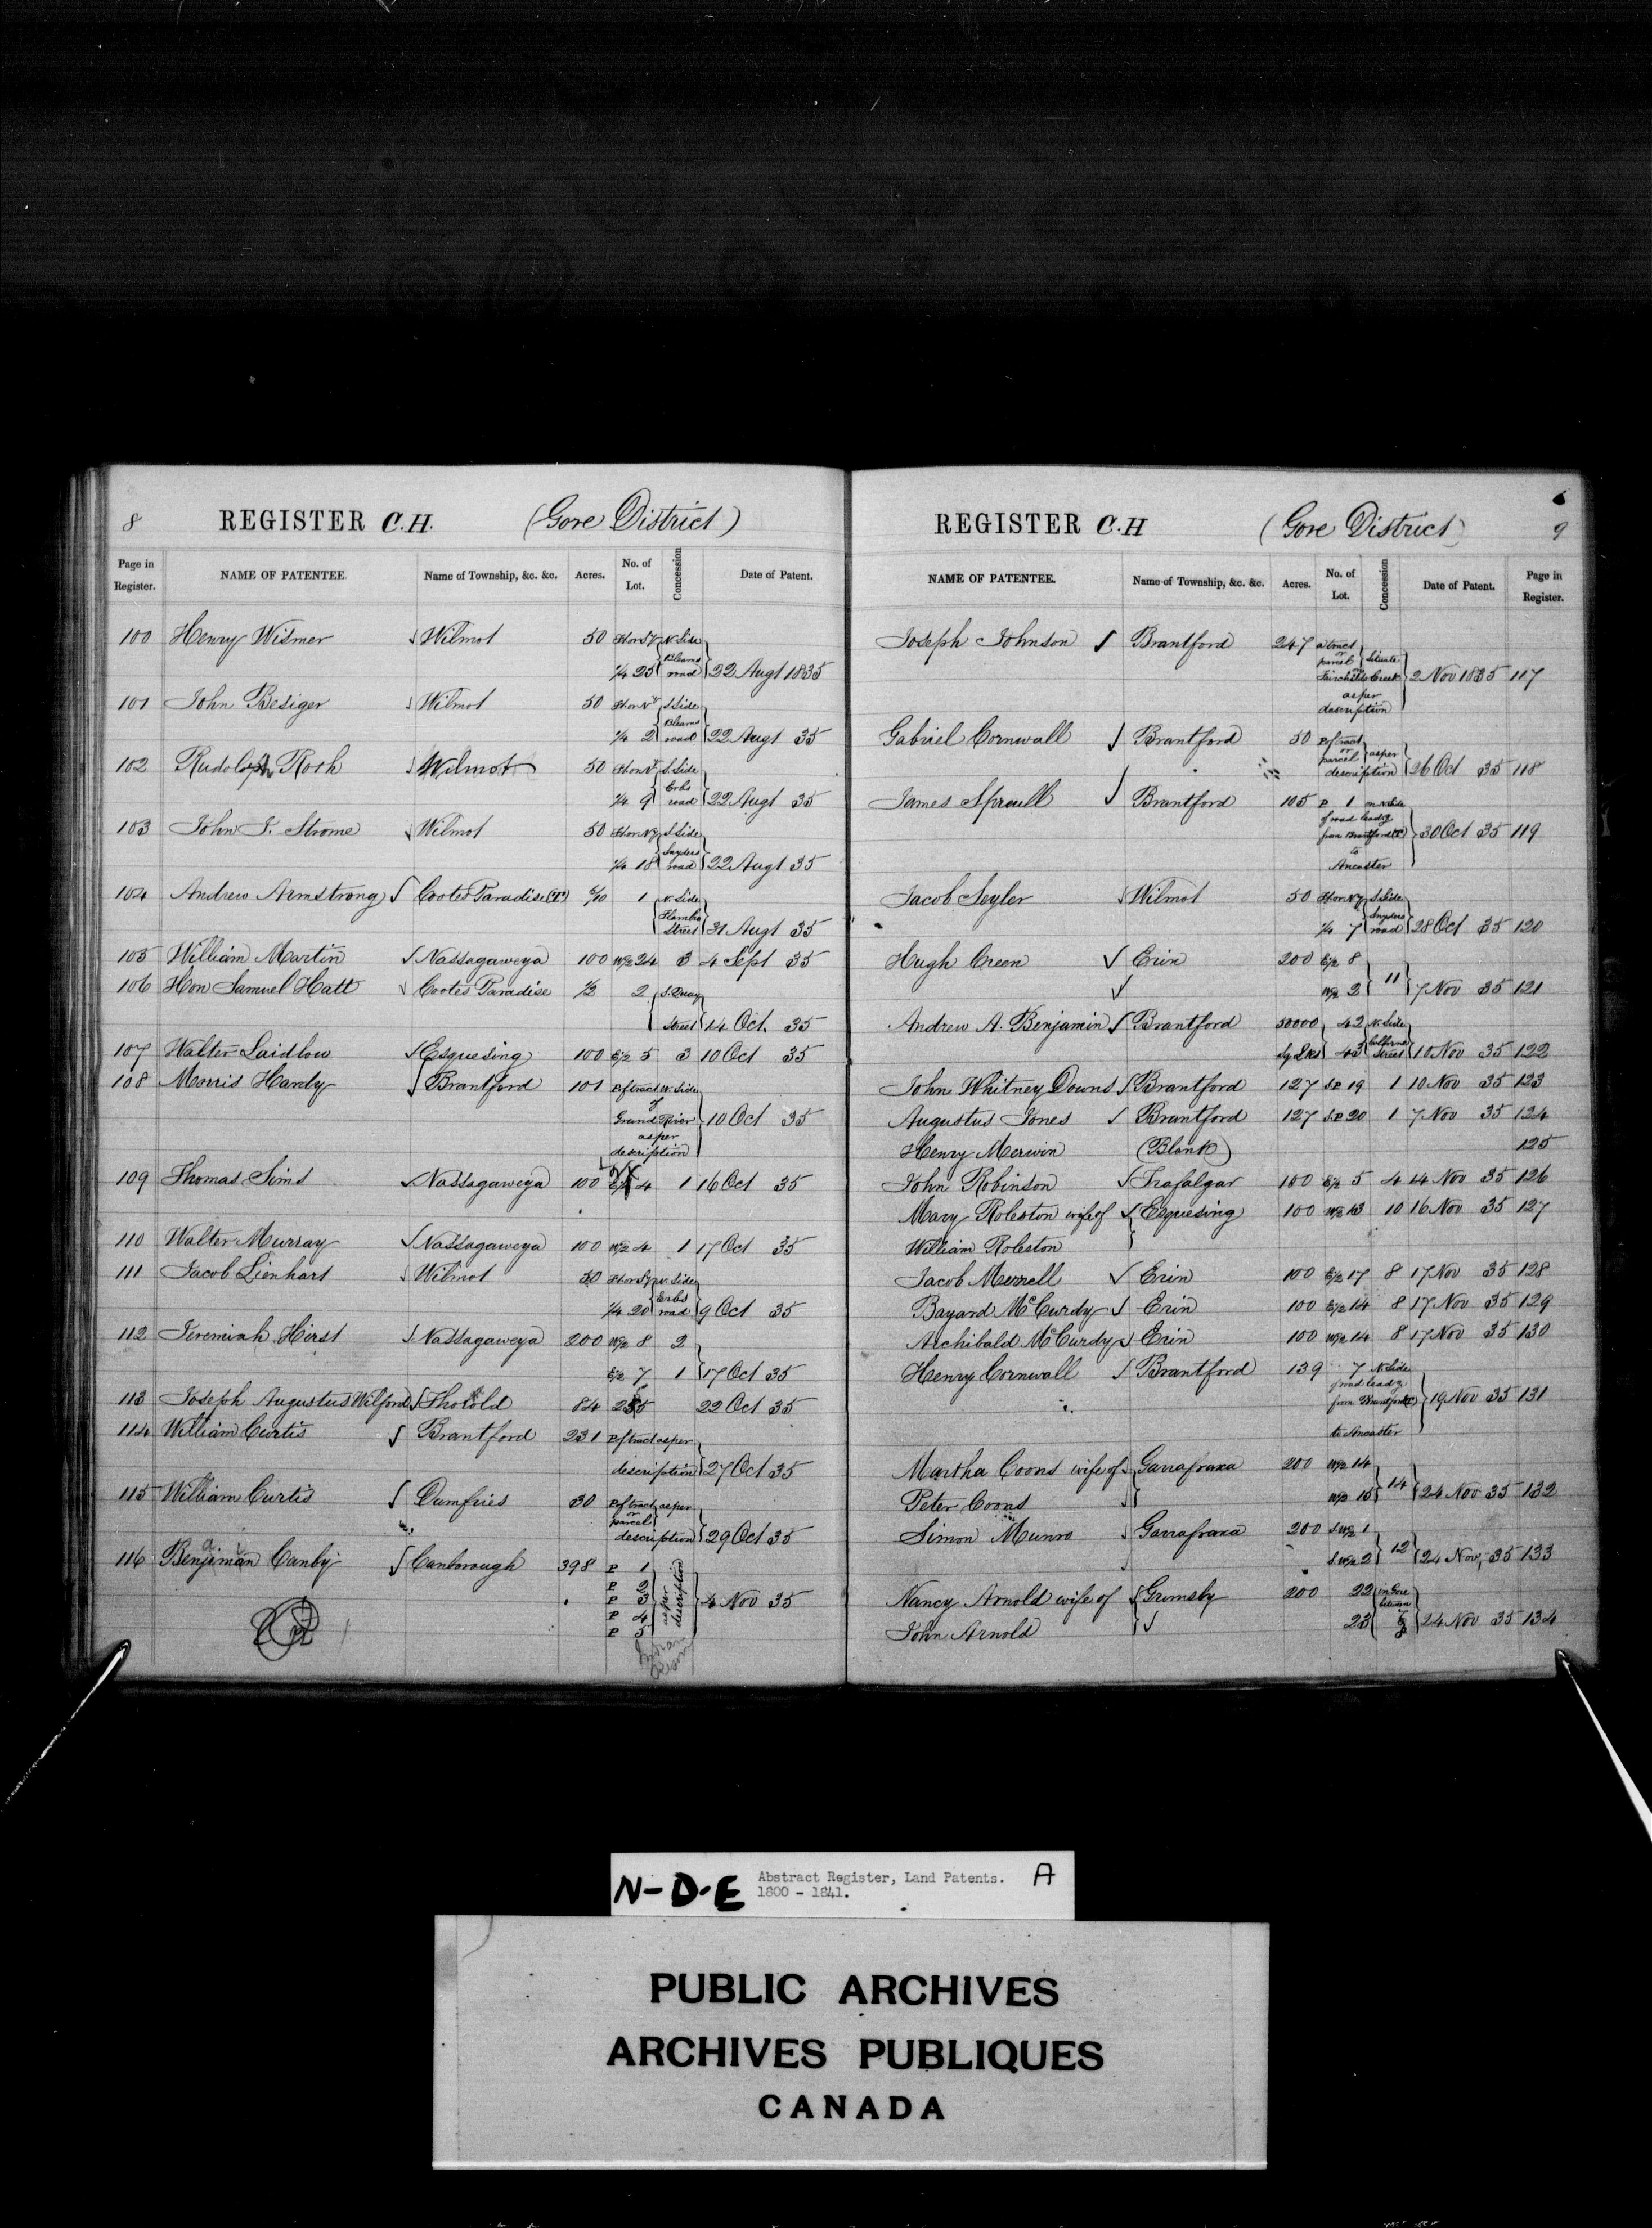 8
REGISTER C.H. (Gore District)
Page in Register. NAME OF PATENTEE. Name of Township, &c. &c. Acres. No. of Lot. Concession Date of Patent.
100 Henry Wismer Wilmot 50 N. Side
1/4 25 road 22 Augt 1835
101 John Besiger Wilmot 50 S. Side
1/4 2 road 22 Augt 35
102 Rudolph Roth Wilmot 50 S. Side
Erbs
1/4 9 road 22 Augt 35
103 John T. Strome Wilmot 50 S. Side
Snyders
1/4 18 road 22 Augt 35
104 Andrew Armstrong Cootes Paradise (T) 1 N. Side
Street 31 Augt 35
105 William Martin Nassagaweya 100 W/2 24 3 4 Sept 35
106 Hon Samuel Hatt Cootes Paradise 1/2 2 S. Quay
Street 14 Oct. 35
107 Walter Laidlow Esquesing 100 E/2 5 3 10 Oct 35
108 Morris Hardy Brantford 101 P of tract W. Side
of
Grand River 10 Oct 35
as per
description
109 Thomas Sims Nassagaweya 100 4 1 16 Oct 35
110 Walter Murray Nassagaweya 100 W/2 4 1 17 Oct 35
111 Jacob Lienhart Wilmot 50 N. Side
Erbs
1/4 20 road 9 Oct 35
112 Jeremiah Hirst Nassagaweya 200 W/2 8 2
E/2 7 1 17 Oct 35
113 Joseph Augustus Wilford Thorold 84 22 Oct 35
114 William Curtis Brantford 231 P of tract as per
description 27 Oct 35
115 William Curtis Dumfries 30 P of tract as per
or
parcel
description 29 Oct 35
116 Benjiman Canby Canborough 398 P 1
P 2
P 3 as per description 4 Nov 35
P 4
P 5
Indian
9
REGISTER C.H (Gore District)
NAME OF PATENTEE. Name of Township, &c. &c. Acres. No. of Lot. Concession Date of Patent. Page in Register.
Joseph Johnson Brantford 247 a tract
or
parcel Situate
Fairchilds Creek 2 Nov 1835 117
as per
description
Gabriel Cornwall Brantford 50 P of tract
or
parcel as per
description 26 Oct 35 118
James Sproull Brantford 105 P 1 on N. Side
of road leadg
from Brantford (T) 30 Oct 35 119
to
Ancaster
Jacob Seyler Wilmot 50 S. Side
Snyders
1/4 7 road 28 Oct 35 120
Hugh Creen Erin 200 E/2 8
W/2 2 11 7 Nov 35 121
Andrew A. Benjamin Brantford 50000 42 N. Side
Sq Lks 43 Colborne Street 10 Nov 35 122
John Whitney Downs Brantford 127 19 1 10 Nov 35 123
Augustus Jones Brantford 127 20 1 7 Nov 35 124
Henry Merwin (Blank) 125
John Robinson Trafalgar 100 E/2 5 4 14 Nov 35 126
Mary Roleston wife of Esquesing 100 W/2 13 10 16 Nov 35 127
William Roleston
Jacob Murrell Erin 100 E/2 17 8 17 Nov 35 128
Bayard McCurdy Erin 100 E/2 14 8 17 Nov 35 129
Archibald McCurdy Erin 100 W/2 14 8 17 Nov 35 130
Henry Cornwall Brantford 139 7 N. Side
of road leadg
from Brantford (T) 19 Nov 35 131
to Ancaster
Martha Coons wife of Garrafraxa 200 W/2 14
Peter Coons W/2 15 14 24 Nov 35 132
Simon Munro Garrafraxa 200 S W/2 1
S W/2 2 12 24 Nov, 35 133
Nancy Arnold wife of Grimsby 200 22 in Gore
between
John Arnold 23 24 Nov 35 134
N-D-E Abstract Register, Land Patents. A
1800 - 1841.
PUBLIC ARCHIVES
ARCHIVES PUBLIQUES
CANADA